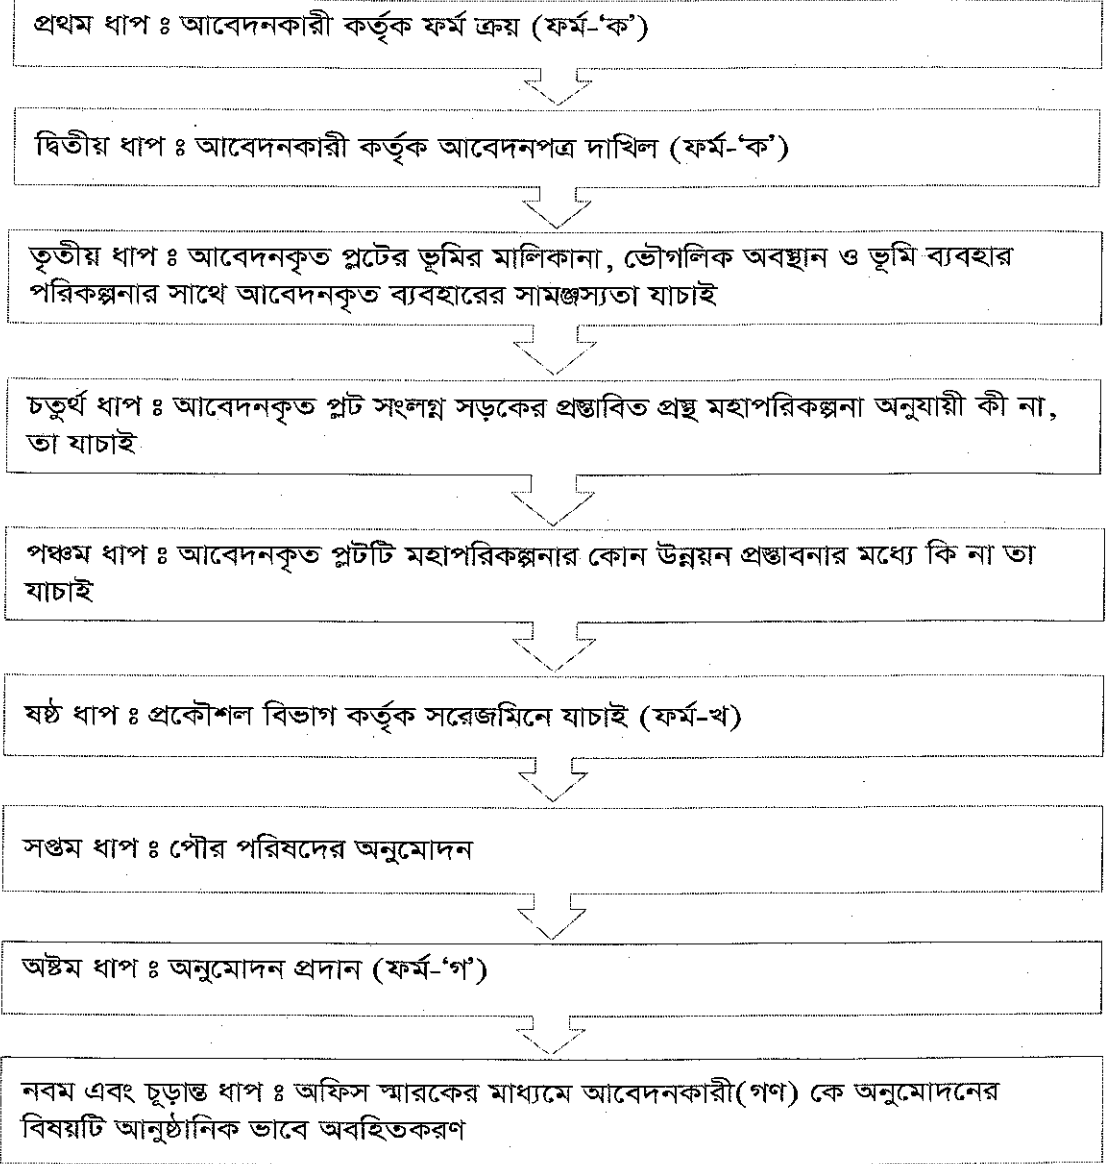 প্রথম ধাপ ঃ আবেদনকারী কর্তৃক ফর্ম ক্রয় (ফর্ম-‘ক’)
দ্বিতীয় ধাপ ঃ আবেদনকারী কর্তৃক আবেদনপত্র দাখিল (ফর্ম-‘ক’)
তৃতীয় ধাপ ঃ আবেদনকৃত প্লটের ভূমির মালিকানা, ভৌগলিক অবস্থান ও ভূমি ব্যবহার
পরিকল্পনার সাথে আবেদনকৃত ব্যবহারের সামঞ্জস্যতা যাচাই
চতুর্থ ধাপ ঃ আবেদনকৃত প্লট সংলগ্ন সড়কের প্রস্তাবিত প্রস্থ মহাপরিকল্পনা অনুযায়ী কী না,
তা যাচাই
পঞ্চম ধাপ ঃ আবেদনকৃত প্লটটি মহাপরিকল্পনার কোন উন্নয়ন প্রস্তাবনার মধ্যে কি না তা
যাচাই
ষষ্ঠ ধাপ ঃ প্রকৌশল বিভাগ কর্তৃক সরেজমিনে যাচাই (ফর্ম-খ)
সপ্তম ধাপ ঃ পৌর পরিষদের অনুমোদন
অষ্টম ধাপ ঃ অনুমোদন প্রদান (ফর্ম-‘গ’)
নবম এবং চূড়ান্ত ধাপ ঃ অফিস স্মারকের মাধ্যমে আবেদনকারী(গণ) কে অনুমোদনের
বিষয়টি আনুষ্ঠানিক ভাবে অবহিতকরণ